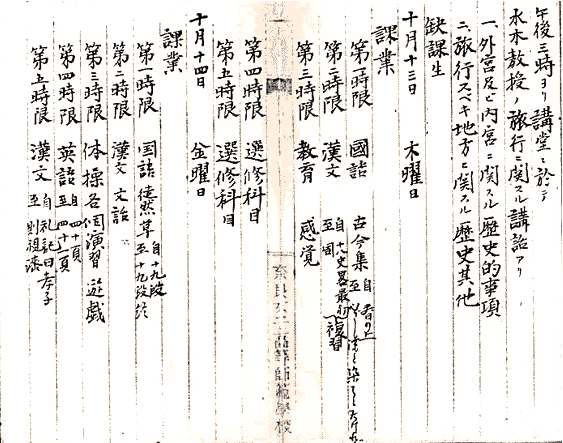 午後三時ヨリ講堂ニ於テ
水木教授ノ旅行ニ関スル講話アリ
一、外宮及ビ内宮ニ関スル歴史的事項
二、旅行スベキ地方ニ関スル歴史其他
缺課生
十月十三日 木曜日
課業
第一時限 國語 古今集 自春の上
第二時限 漢文 自十八史畧最初 至周 復習
第三時限 教育 感覚
第四時限 選修科目
第五時限 選修科目
奈良女子高等師範學校
十月十四日 金曜日
課業
第一時限 国語 徒然草 自十九段 至十九段終
第二時限 漢文 文話
第三時限 体操 各個演習 遊戯
第四時限 英語 自四十頁 至四十一頁
第五時限 漢文 自礼記曰孝子 至則視漆